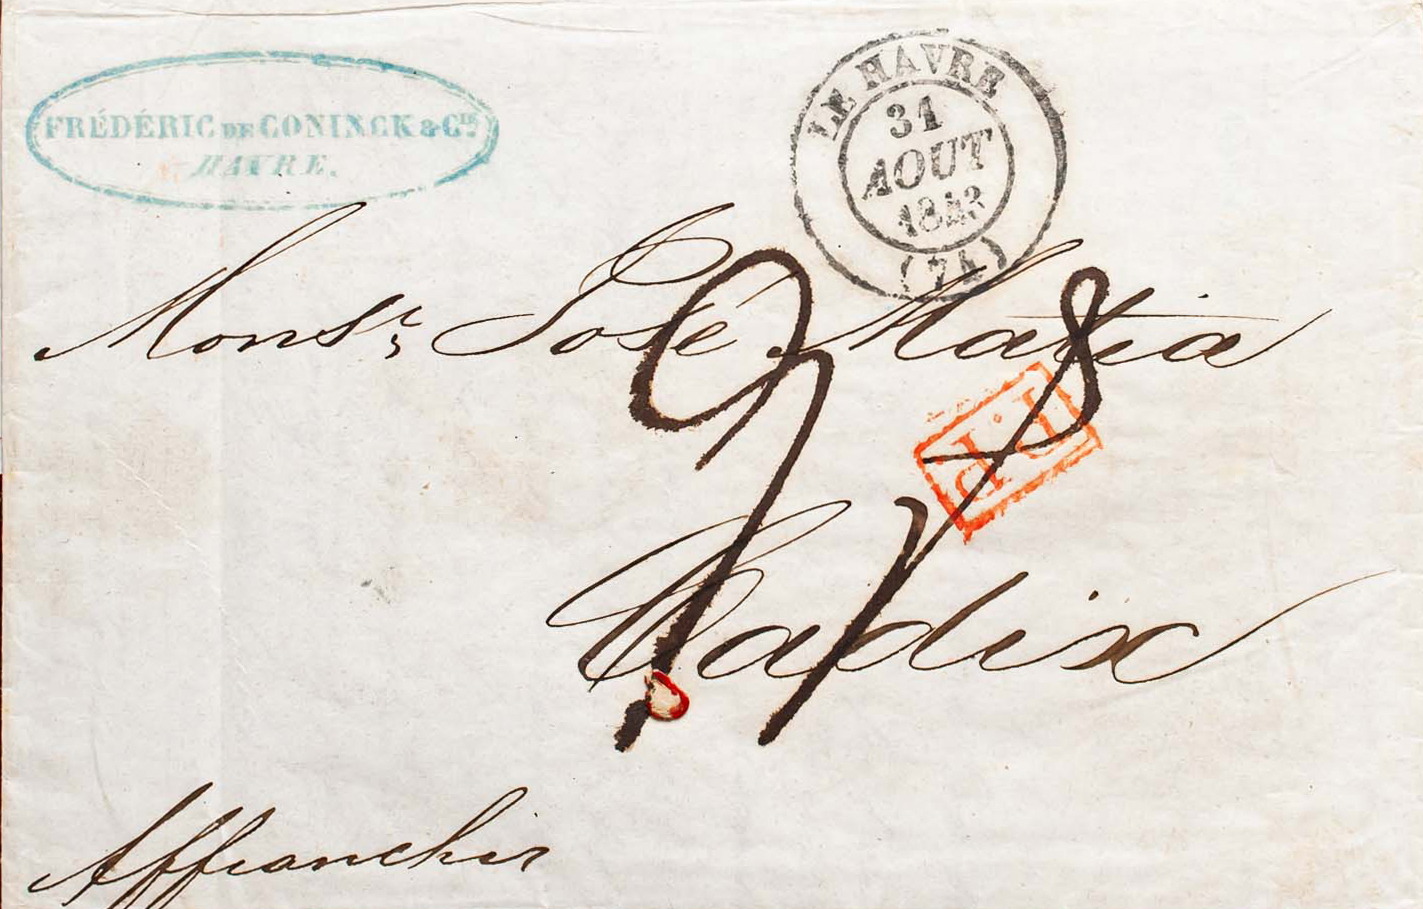 FRÉDÉRIC DE CONINCK & Cie.
HAVRE.
LE HAVRE
31
AOUT
1843
(74)
Monsr. José Matia
P.P.
Cadix
Affranchir